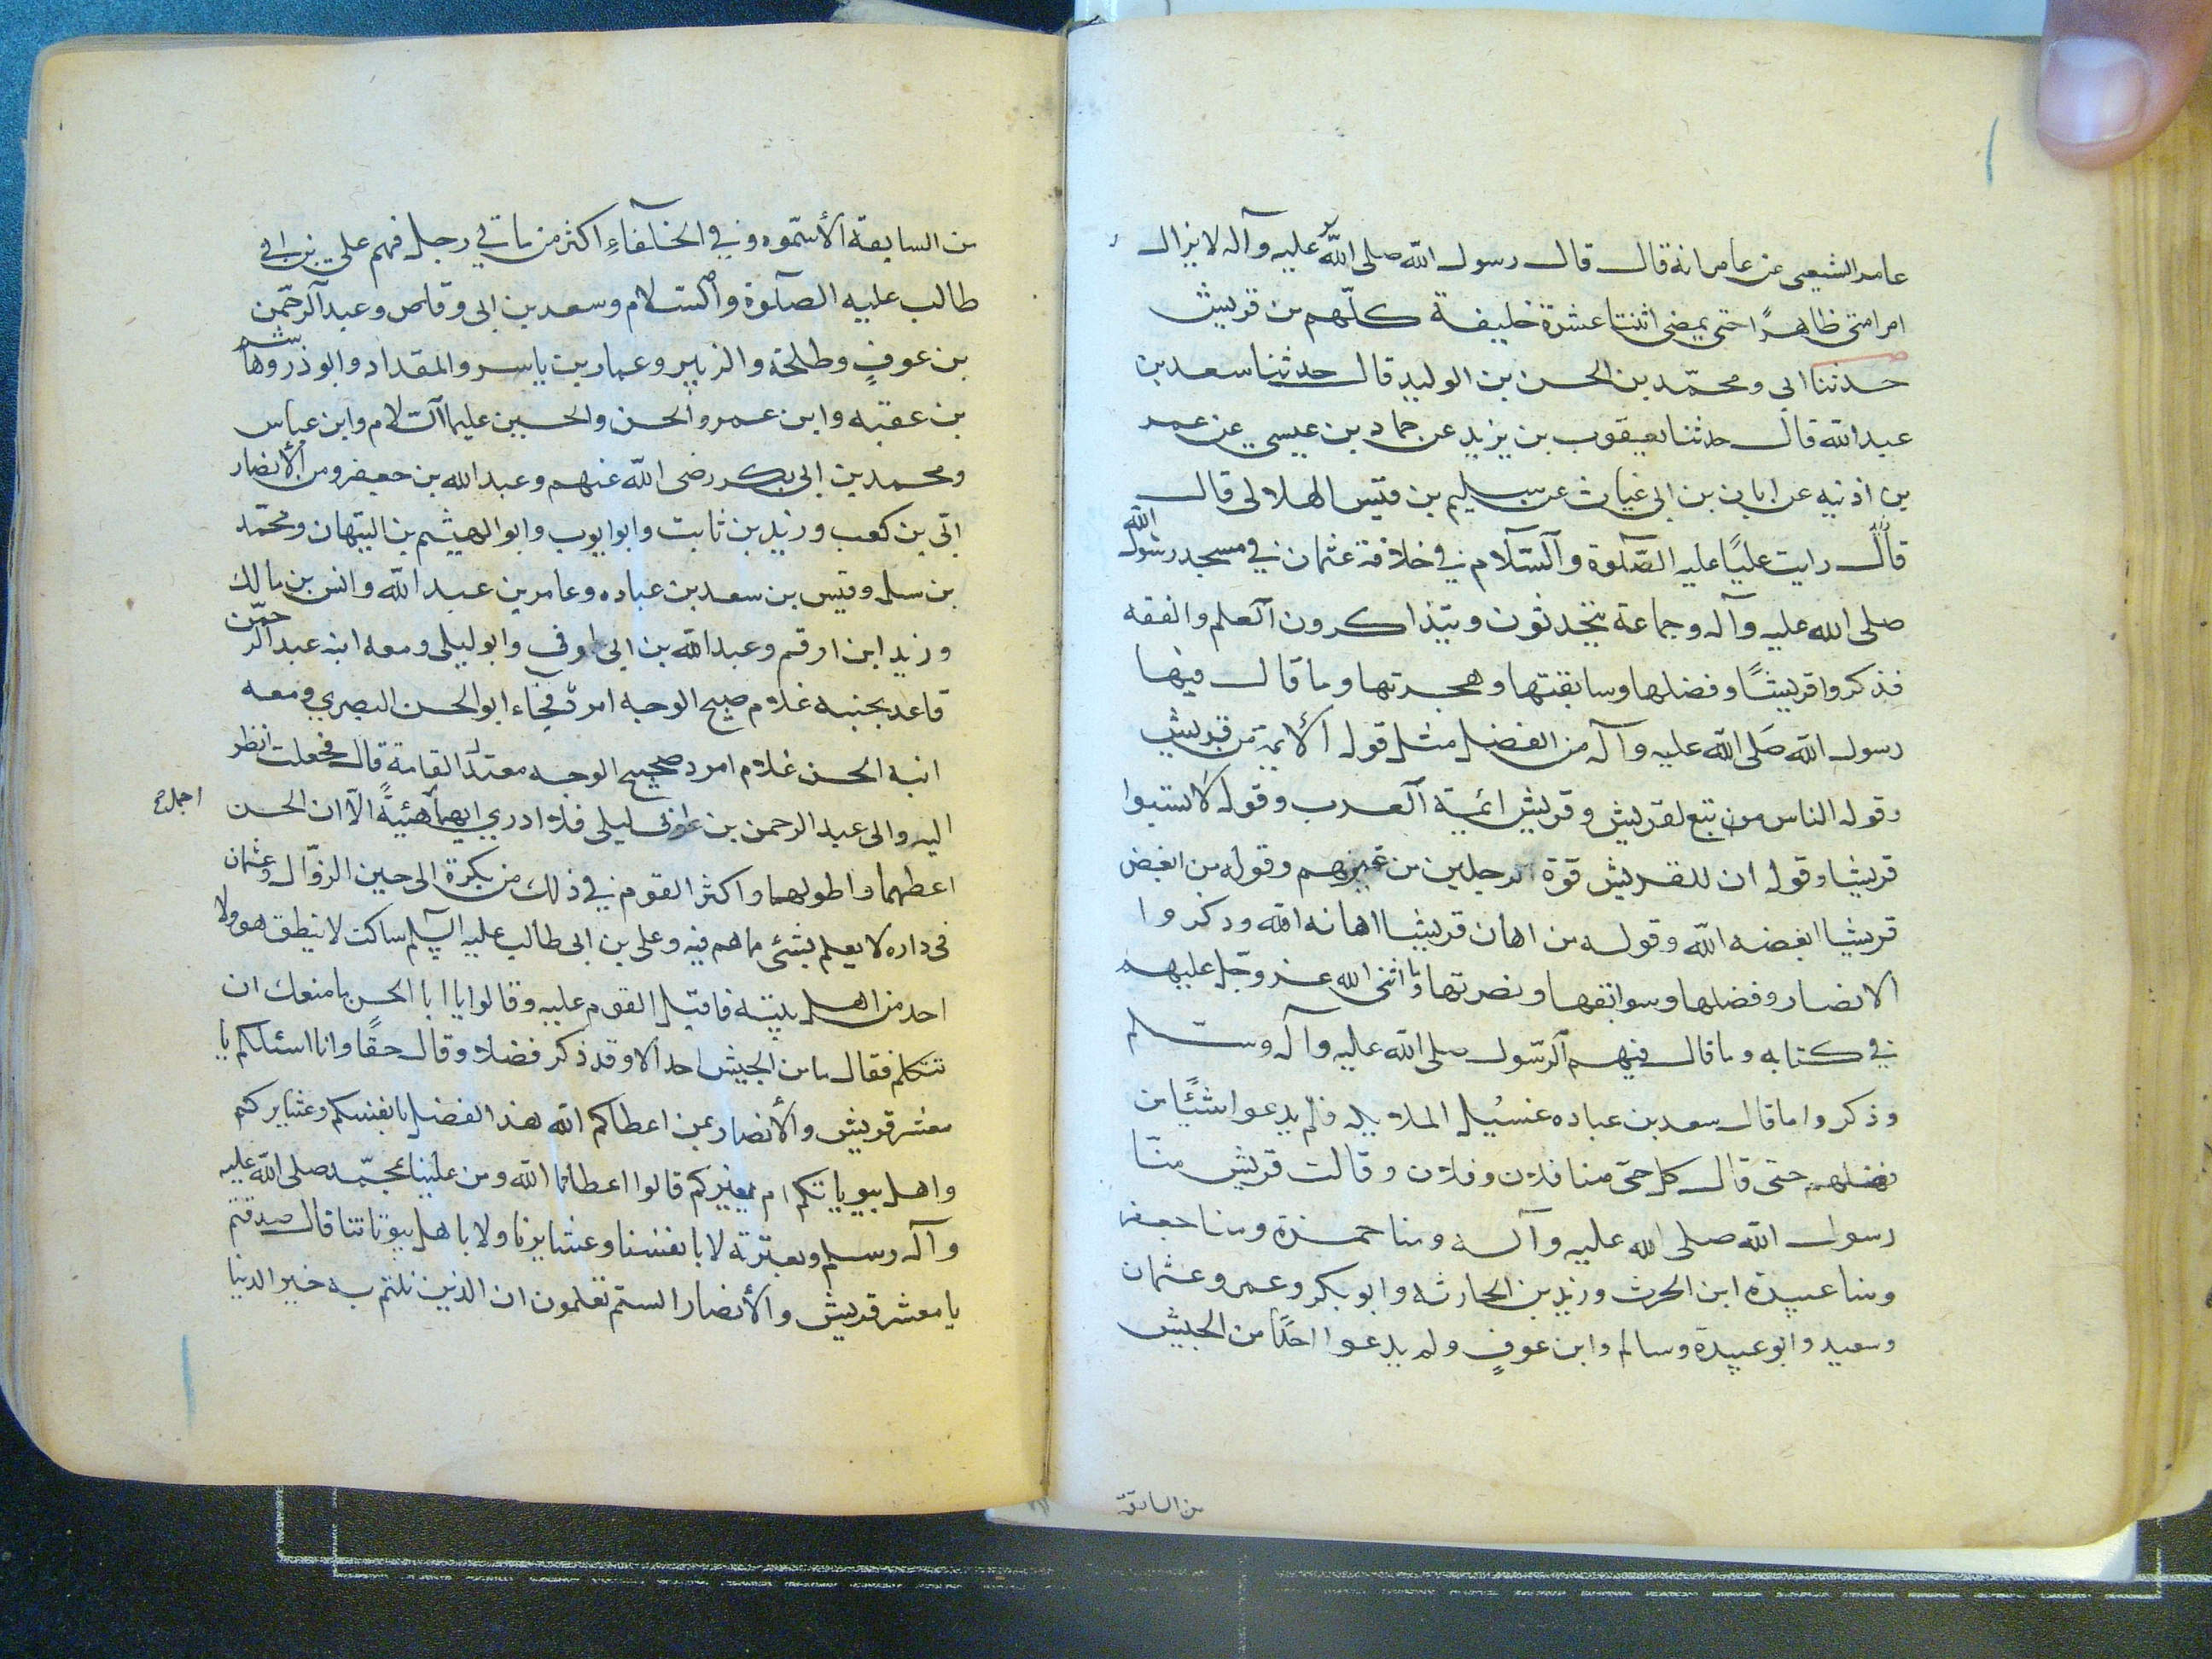 عامر الشعبي عن عامر انه قال قال رسول الله صلى الله عليه وآله لا يزال
امر امتي ظاهرًا حتى يمضي اثنتا عشرة خليفة كلّهم من قريش
حدثنا ابي ومحمّد بن الحسن بن الوليد قال حدثنا سعد بن
عبد الله قال حدثنا يعقوب بن يزيد عن حماد بن عيسى عن عمر
بن اذنيه عن ابان بن ابي غياث عن سليم بن قيس الهلالي قال
قال رايت عليًا عليه الصّلوة والسّلام في خلافة عثمان في مسجد رسول الله
صلى الله عليه وآله وجماعة يتحدثون ويتذاكرون العلم والفقه
فذكروا قريشًا وفضلها وسابقتها وهجرتها وما قال فيها
رسول الله صَلى الله عليه وآله من الفضل مثل قوله الأيمة من قريش
وقوله الناس من تبع لقريش وقريش ائمية العرب وقوله لا تسبوا
قريشا وقوله ان للقريش قوة رجلين من غيرهم وقوله من ابغض
قريشا ابغضه الله وقوله من اهان قريشا اهانه الله وذكروا
الانصار وفضلها وسوابقها ونصرتها وما اثنى الله عز وجّل عليهم
في كتابه وما قال فيهم الرسّول صلى الله عليه وآله وسلّم
وذكروا ما قال سعد بن عباده غسيُل الملاييله فلم يدعوا شئيًا من
فضلهم حتى قال كل حي منا فلان وفلان وقالت قريش منّا
رسول الله صلى الله عليه وآله ومنا حمزة ومنا جعفر
ومنا عبيدة ابن الحرث وزيد بن الحارثه وابو بكر وعمر وعثمان
وسعيد وابو عبيدة وسالم وابن عوفٍ ولم يدعوا احدًا من الجيش
من السابقة
من السابقة الأسمّوه وفي الخلفاءِ اكثر من ماتي رجل فهم علي بن ابي
طالب عليه الصلوة والسلام وسعد بن ابي وقاص وعبد الرحّمن
بن عوفٍ وطلحة والزبير وعمار بن ياسر والمقداد وابو ذر وهاشم
بن عقبه وابن عمر والحسن والحسين عليهما السلام وابن عباس
ومحمد بن ابي بكر رضى الله عنهم وعبد الله بن جعفر ومن الأنصار
ابّي بن كعب وزيد بن ثابت وابو ايوب وابو الهيثم بن التيهان ومحمّد
بن سلمه وقيس بن سعد بن عباده وعامر بن عبد الله وانس بن مالك
وزيد ابن ارقم وعبد الله بن ابي اوفى وابو ليلى ومعه ابنه عبد الرحمّن
قاعد بجنبه غلام صبيح الوجه امرد فجاء ابو الحسن البصري ومعه
ابنه الحسن غلام امرد صحيح الوجه معتدل القامة قال فجعلت انظر
اليه والى عبد الرحمن بن ابي ليلى فلا ادري ايهما هئيةً الّا ان الحسن
اجمل
اعظمهما واطولهما واكثر القوم في ذلك من بكرة الى حين الزوّال وعثمان
في داره لا يعلم بشئى مما هم فيه وعلى بن ابي طالب عليه السلم ساكت لا ينطق هو ولا
احد من اهل بيته فاقبل القوم عليه وقالوا يا ابا الحسن ما منعك ان
تتكلم فقال ما من الجيش احد الا وقد ذكر فضلا وقال حقًا وانا اسئلكم يا
معشر قريش والأنصار عمن اعطاكم الله هذا الفضل بانفسكم وعشايركم
واهل بيوياتكم ام بغيركم قالوا اعطانا الله ومن علينا بمحمّد صلى الله عليه
وآله وسلم وبعترته لا بانفسنا وعشايرنا ولا باهل بيوتاتنا قال صدقتم
يا معشر قريش والأنصار الستم تعلمون ان الذين نلتم به خير الدنيا